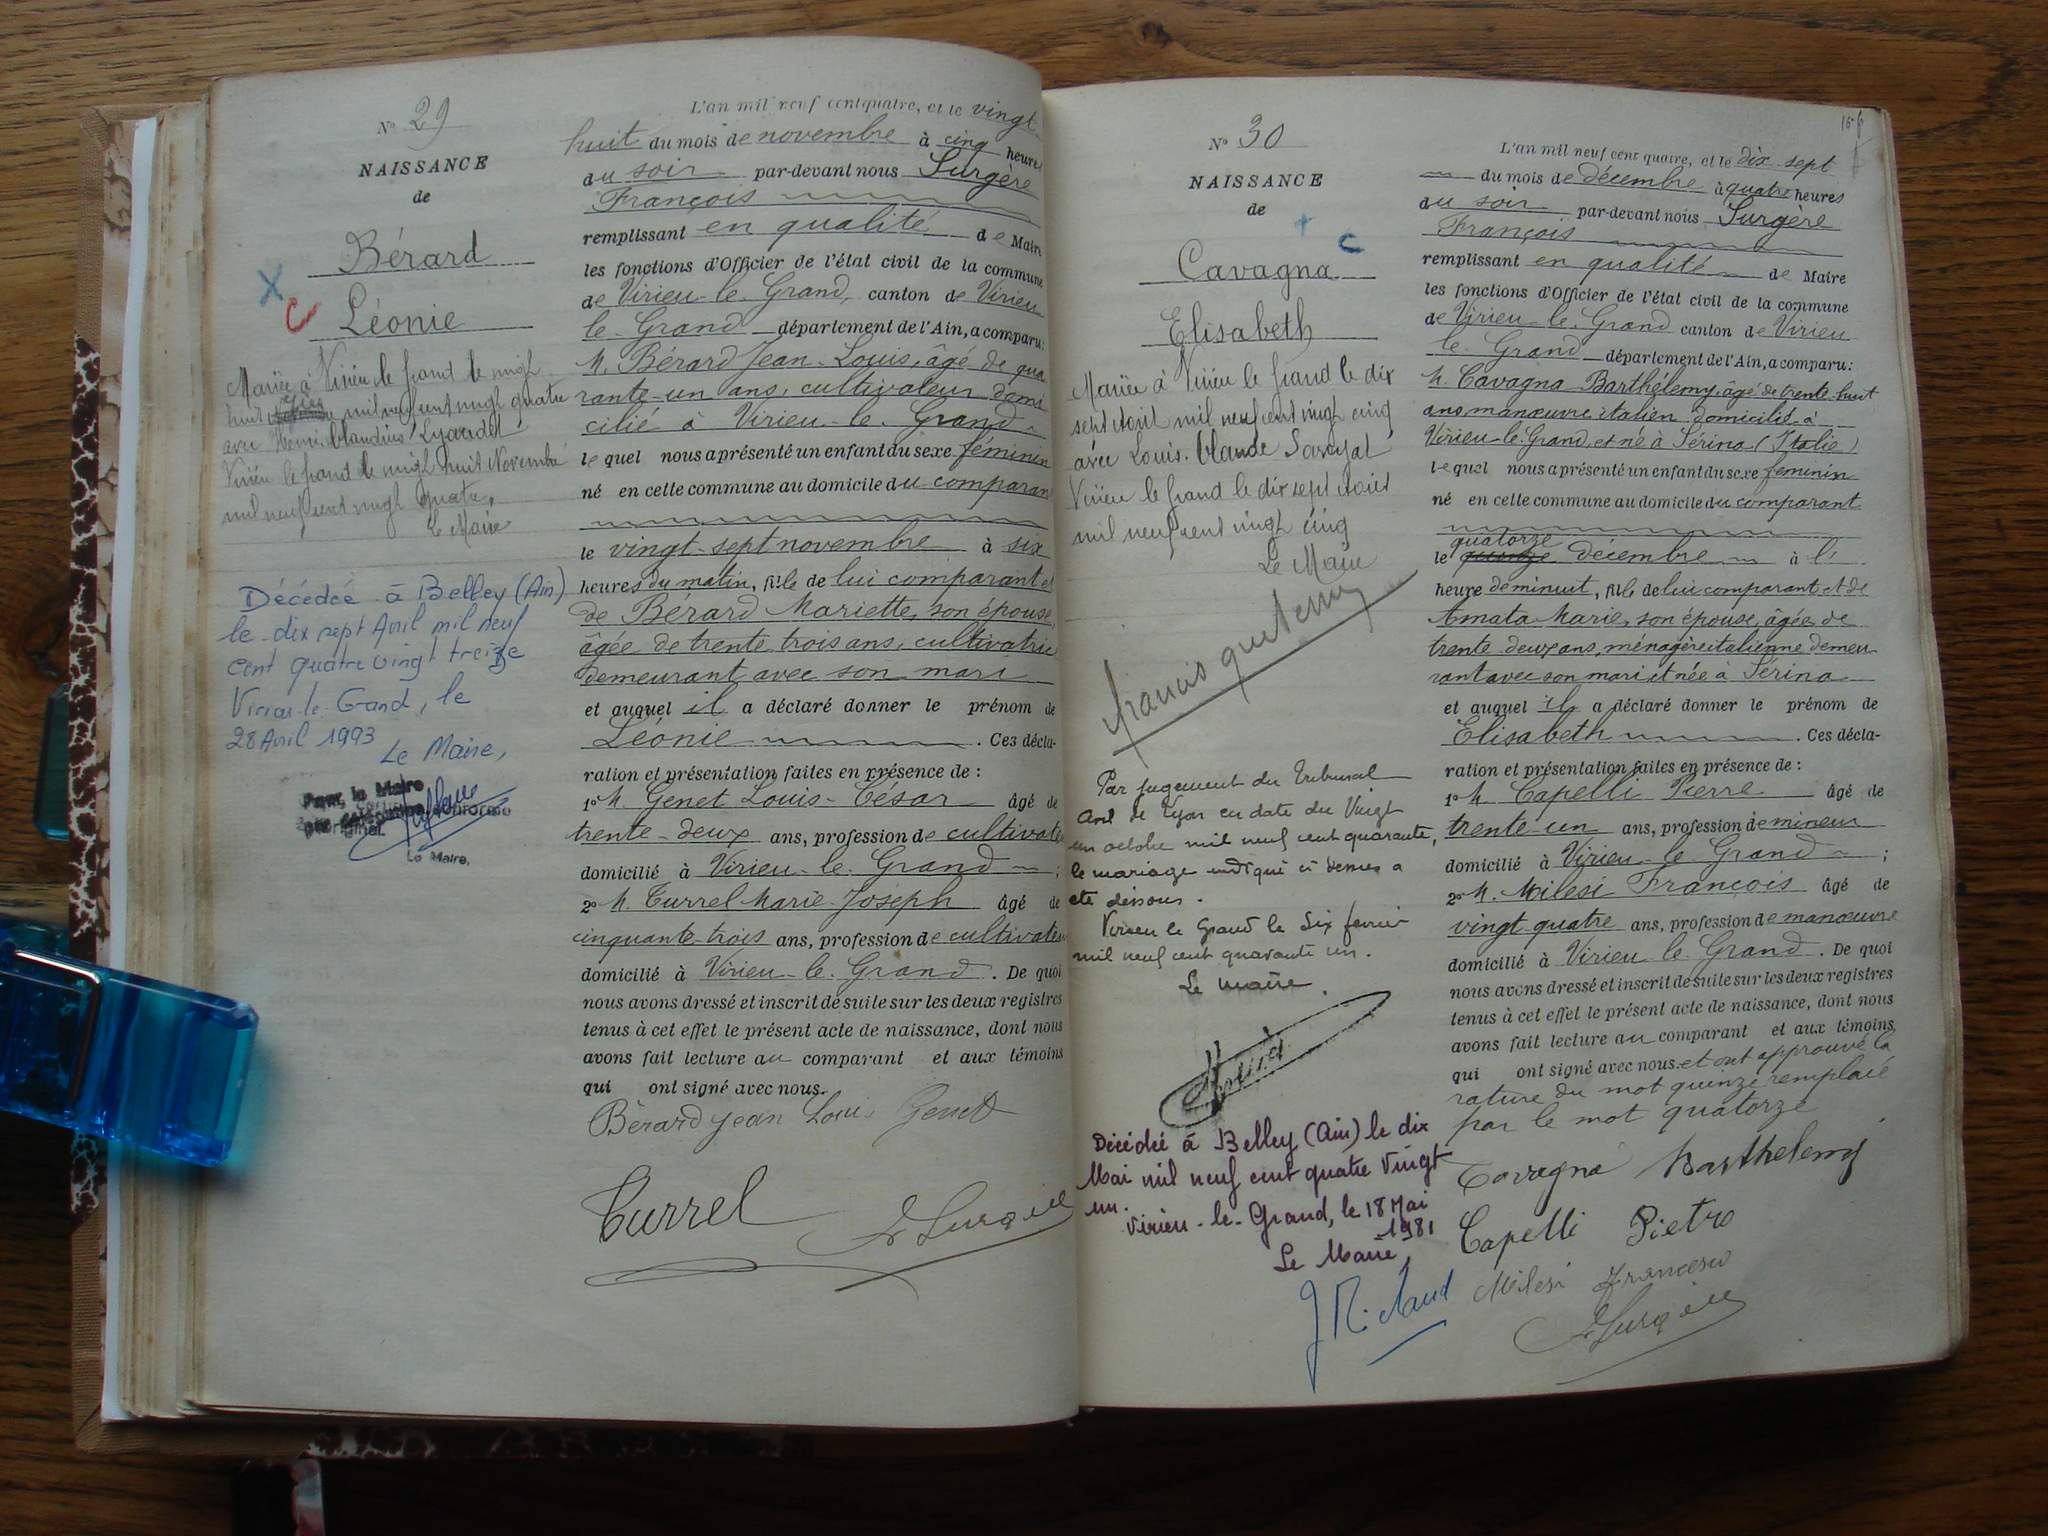 N° 29
NAISSANCE
de
Bérard
Léonie
X
C
Mariée à Virieu le Grand le vingt
huit mil neuf cent vingt quatre
avec Henri Claudius
Virieu le Grand le vingt huit Novembre
mil neuf cent vingt quatre,
Le Maire
Décédée à Belley (Ain)
le dix sept Avril mil neuf
cent quatre vingt treize
Virieu-le-Grand, le
28 Avril 1993
Le Maire,
Pour le Maire
Le Maire,
L'an mil neuf cent quatre, et le vingt
huit du mois de novembre à cinq heures
du soir par-devant nous Surgère
François
remplissant en qualité de Maire
les fonctions d'Officier de l'état civil de la commune
de Virieu-le-Grand, canton de Virieu
le-Grand département de l'Ain, a comparu:
M. Bérard Jean-Louis, âgé de qua
rante-un ans, cultivateur domi
cilié à Virieu-le-Grand
lequel nous a présenté un enfant du sexe féminin
né en cette commune au domicile du comparant
le vingt-sept novembre à six
heures du matin, fille de lui comparant et
de Bérard Mariette, son épouse,
âgée de trente trois ans, cultivatrice
demeurant avec son mari
et auquel il a déclaré donner le prénom de
Léonie . Ces décla-
ration et présentation faites en présence de :
1° M. Genet Louis-César âgé de
trente-deux ans, profession de cultivateur
domicilié à Virieu-le-Grand ;
2° M. Turrel Marie-Joseph âgé de
cinquante-trois ans, profession de cultivateur
domicilié à Virieu-le-Grand . De quoi
nous avons dressé et inscrit de suite sur les deux registres
tenus à cet effet le présent acte de naissance, dont nous
avons fait lecture au comparant et aux témoins
qui ont signé avec nous.
Bérard Jean Louis Genet
Turrel F Surgère
N° 30
NAISSANCE
de
+ C
Cavagna
Elisabeth
Mariée à Virieu le Grand le dix
sept Août mil neuf cent vingt cinq
avec Louis Claude
Virieu le Grand le dix sept Août
mil neuf cent vingt cinq
Le Maire
Francis
Par jugement du Tribunal
de Lyon en date du Vingt
un octobre mil neuf cent quarante,
le mariage indiqué ci dessus a
été dissous.
Virieu le Grand le six février
mil neuf cent quarante un.
Le maire.
Décédée à Belley (Ain) le dix
Mai mil neuf cent quatre vingt
un.
Virieu-le-Grand, le 18 Mai
1981
Le Maire,
L'an mil neuf cent quatre, et le dix sept
du mois de décembre à quatre heures
du soir par-devant nous Surgère
François
remplissant en qualité de Maire
les fonctions d'Officier de l'état civil de la commune
de Virieu-le-Grand canton de Virieu
le-Grand département de l'Ain, a comparu:
M. Cavagna Barthélemy, âgé de trente-huit
ans, manœuvre italien domicilié à
Virieu-le-Grand et né à Sérina (Italie)
lequel nous a présenté un enfant du sexe féminin
né en cette commune au domicile du comparant
quatorze
le quinze décembre à l'
heure de minuit, fille de lui comparant et de
Amata Marie, son épouse, âgée de
trente-deux ans, ménagère italienne demeu
rant avec son mari, et née à Sérina
et auquel il a déclaré donner le prénom de
Elisabeth . Ces décla-
ration et présentation faites en présence de :
1° M. Capelli Pierre âgé de
trente-un ans, profession de mineur
domicilié à Virieu-le-Grand ;
2° M. Milesi François âgé de
vingt quatre ans, profession de manœuvre
domicilié à Virieu le Grand . De quoi
nous avons dressé et inscrit de suite sur les deux registres
tenus à cet effet le présent acte de naissance, dont nous
avons fait lecture au comparant et aux témoins
qui ont signé avec nous et ont approuvé la
rature du mot quinze remplacé
par le mot quatorze
Cavagna Barthelemy
Capelli Pietro
Milesi Francesco
F Surgère